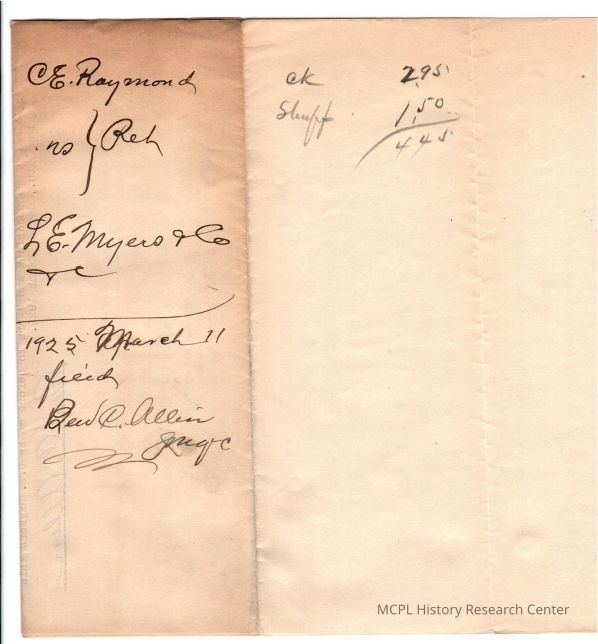 C.E. Raymond
vs } Ret
L.E. Myers & Co
&c
1925 March 11
filed
Ben C. Allin
ck 2.95
Sheriff 1.50
4 45
MCPL History Research Center